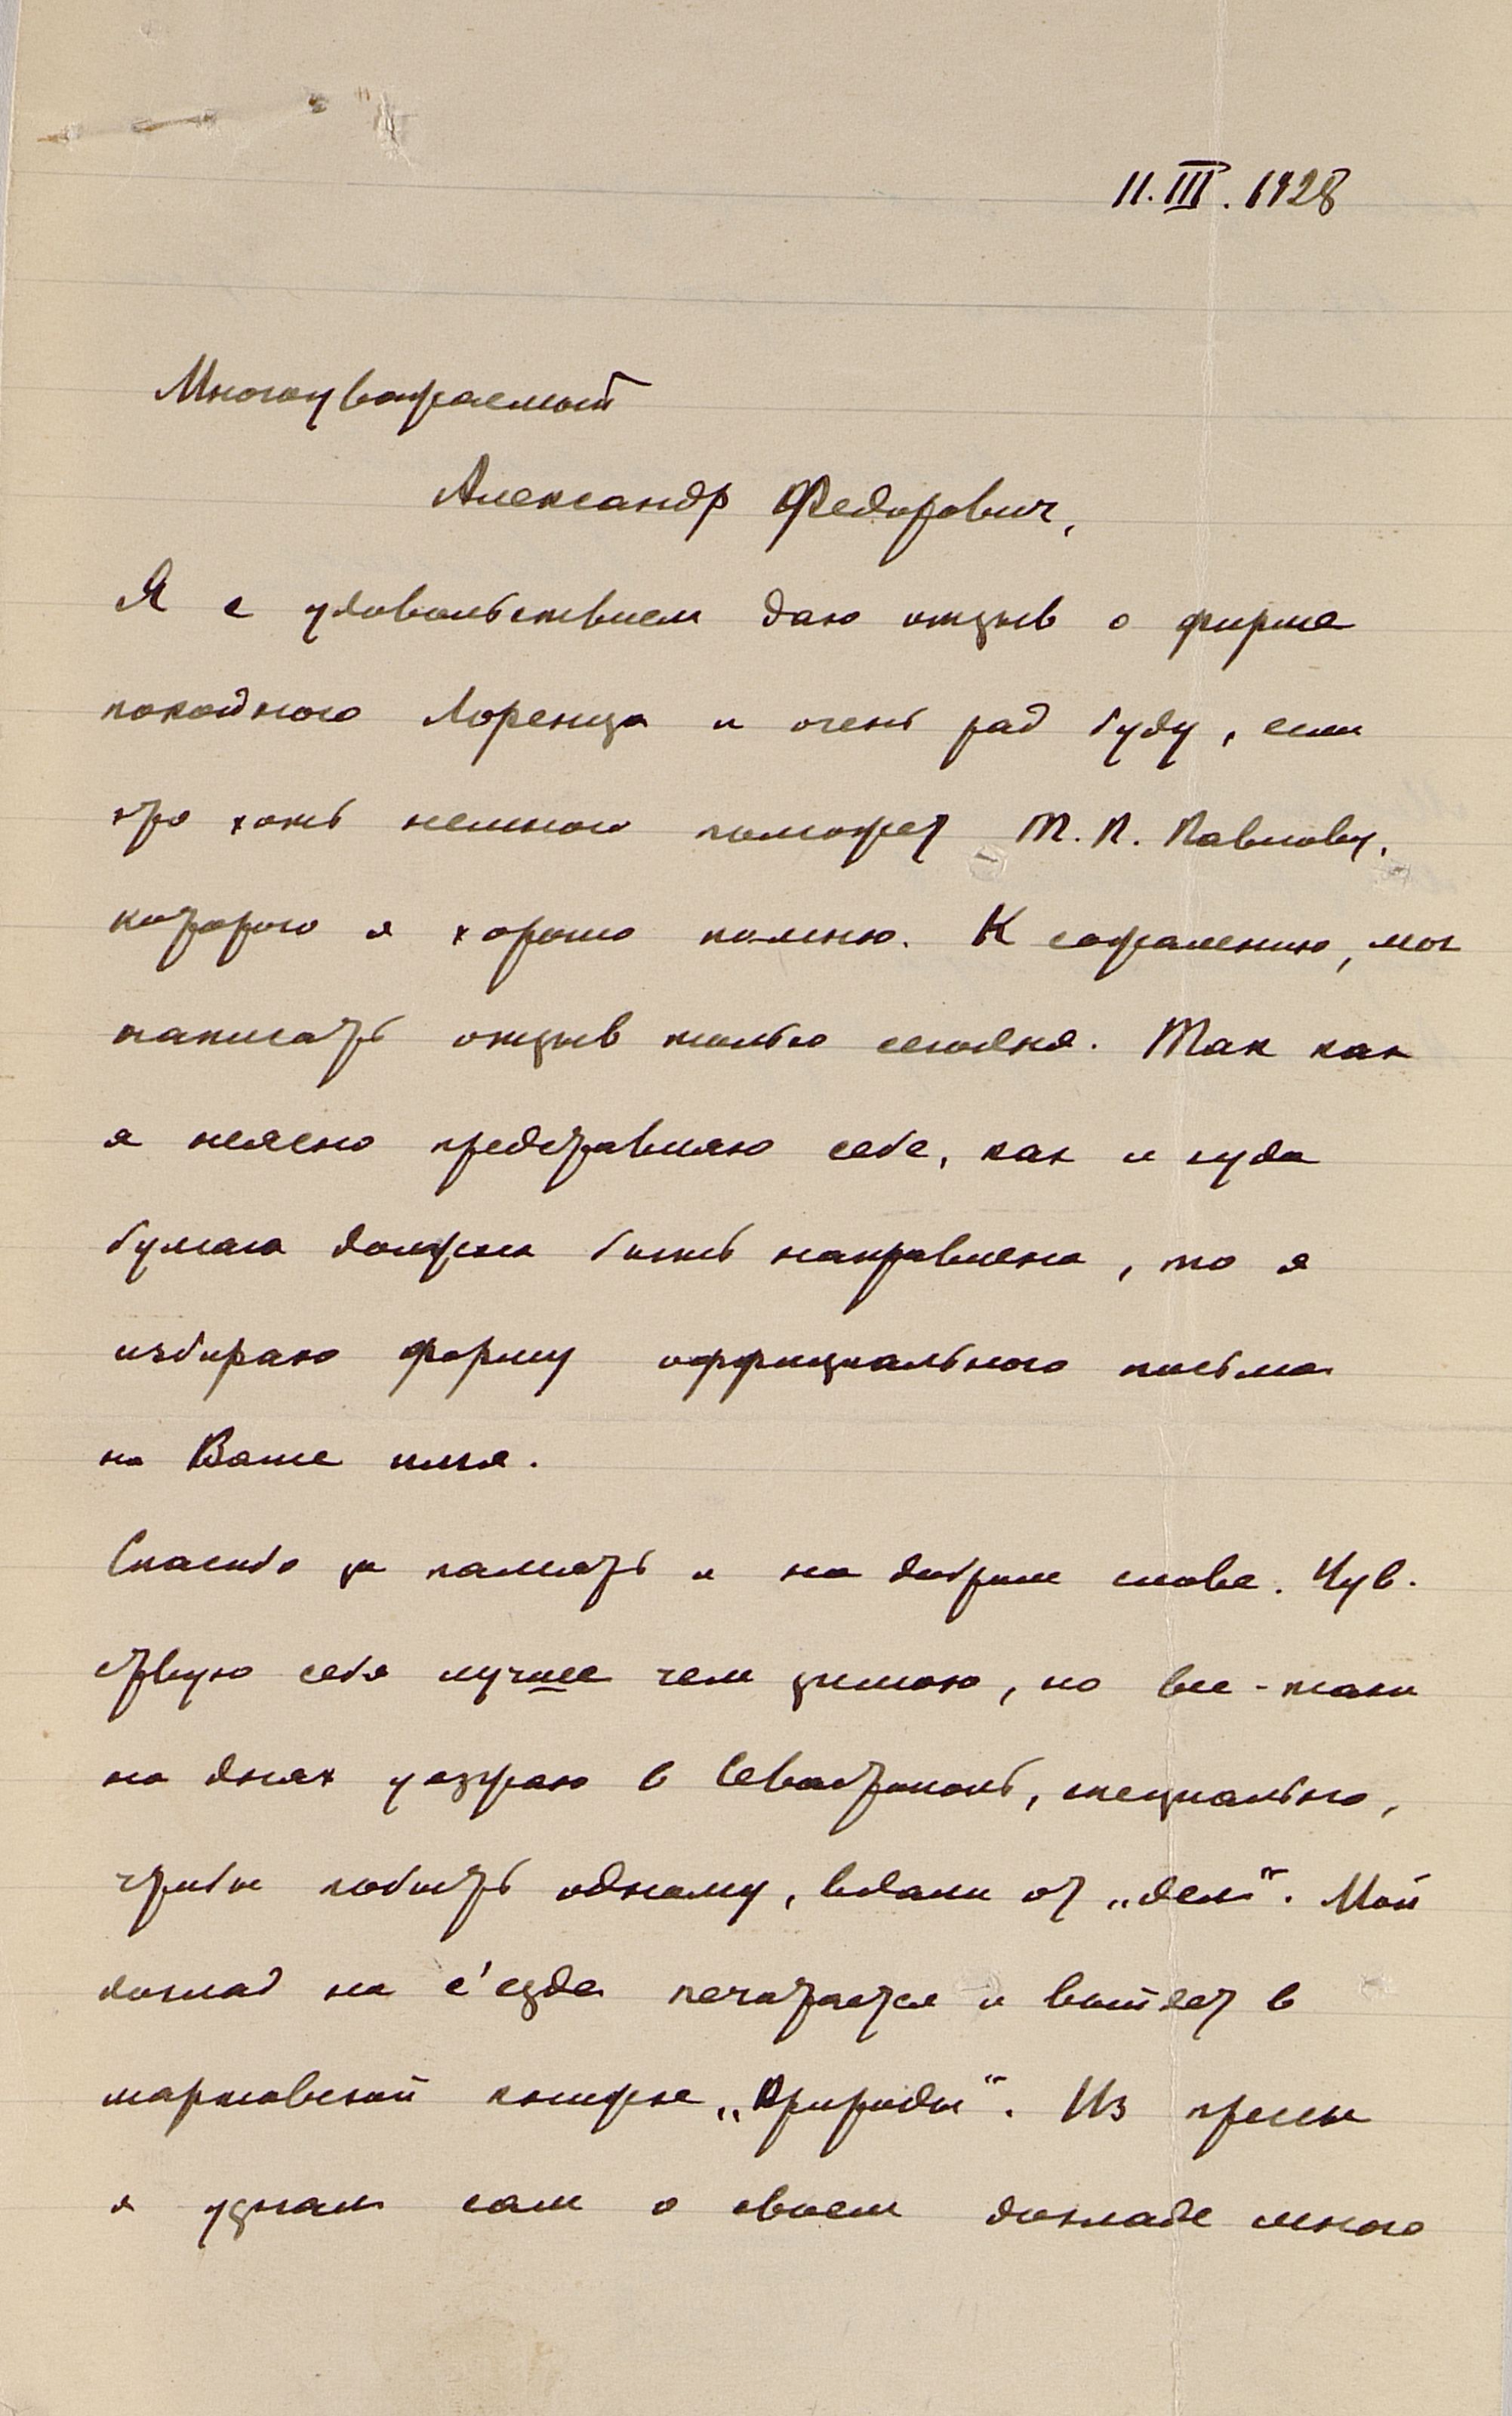 11.III.1928
Многоуважаемый
Александр Федорович,
Я с удовольствием даю отзыв о фирме
покойного Лоренца и очень рад буду, если
это хоть немного поможет Т. П. Павлову,
которого я хорошо помню. К сожалению, мог
написать отзыв только сегодня. Так как
я неясно представляю себе, как и куда
бумага должна быть направлена, то я
избираю форму оффициального письма
на Ваше имя.
Спасибо за память и на добром слове. Чув-
ствую себя лучше чем зимою, но все-таки
на днях уезжаю в Севастополь, специально,
чтобы побыть одному, вдали от „дел“. Мой
доклад на с'езде печатается и выйдет в
мартовской книжке „Природы“. Из прессы
я узнал сам о своем докладе много